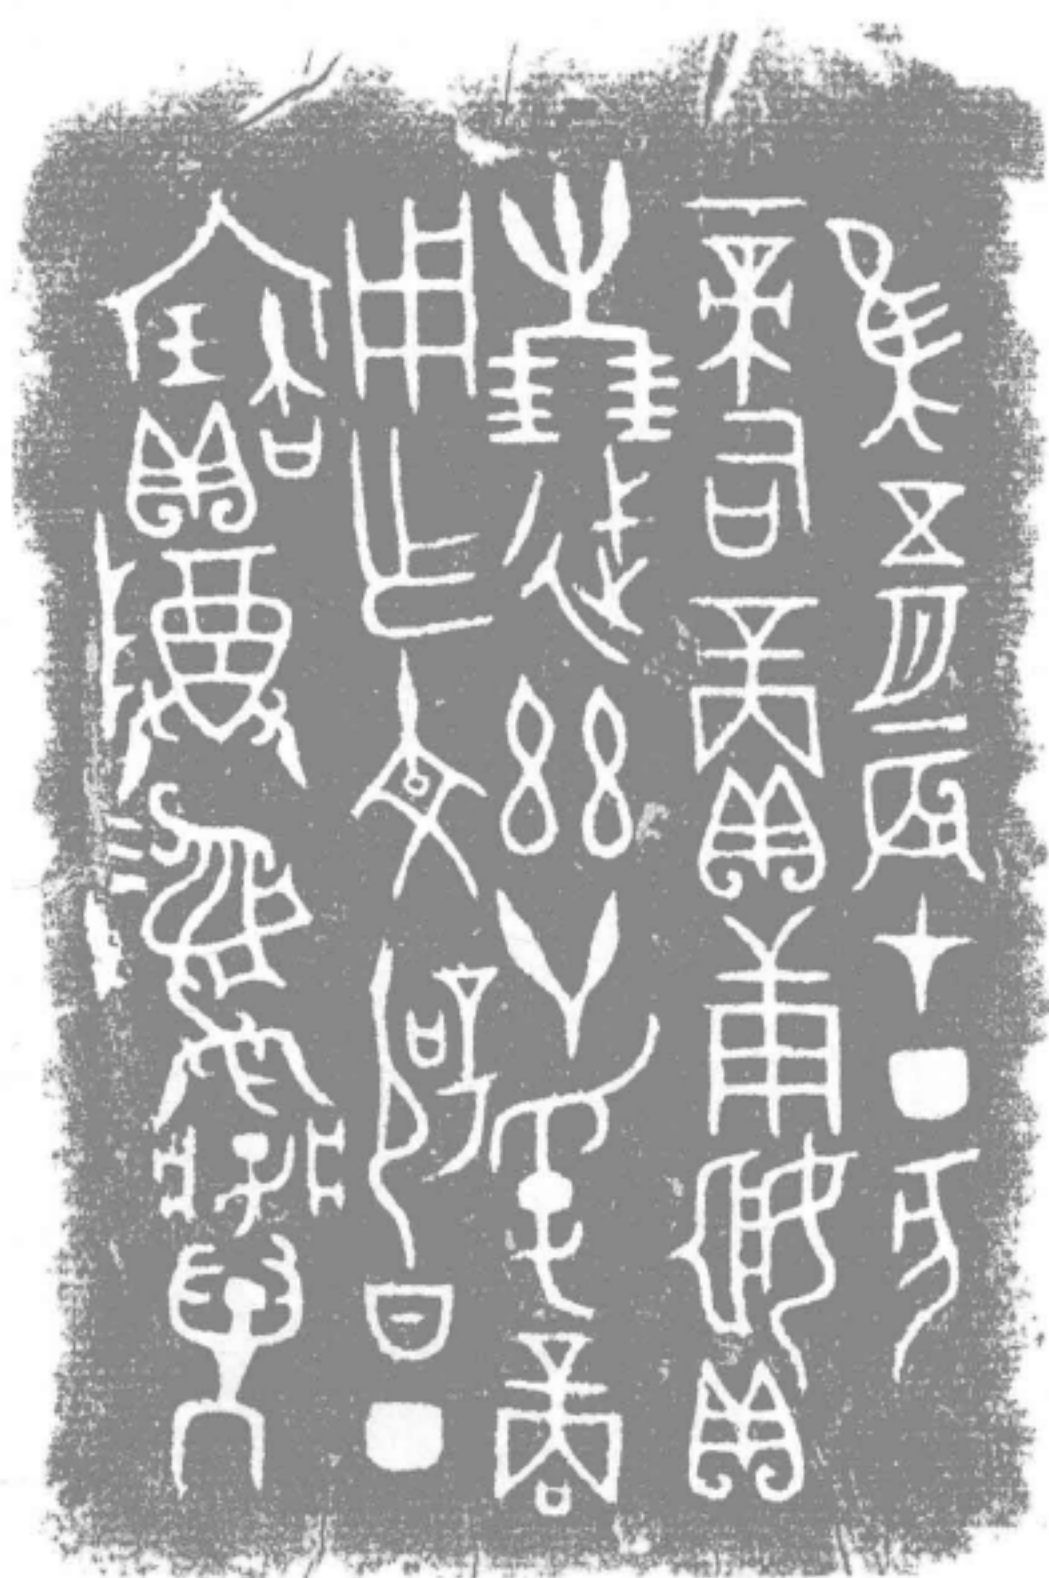 隹五月辰才丁亥
帝司賞庚姬貝
卅朋迖絲廿寽商
用乍文辟日丁
寶𬯚彝